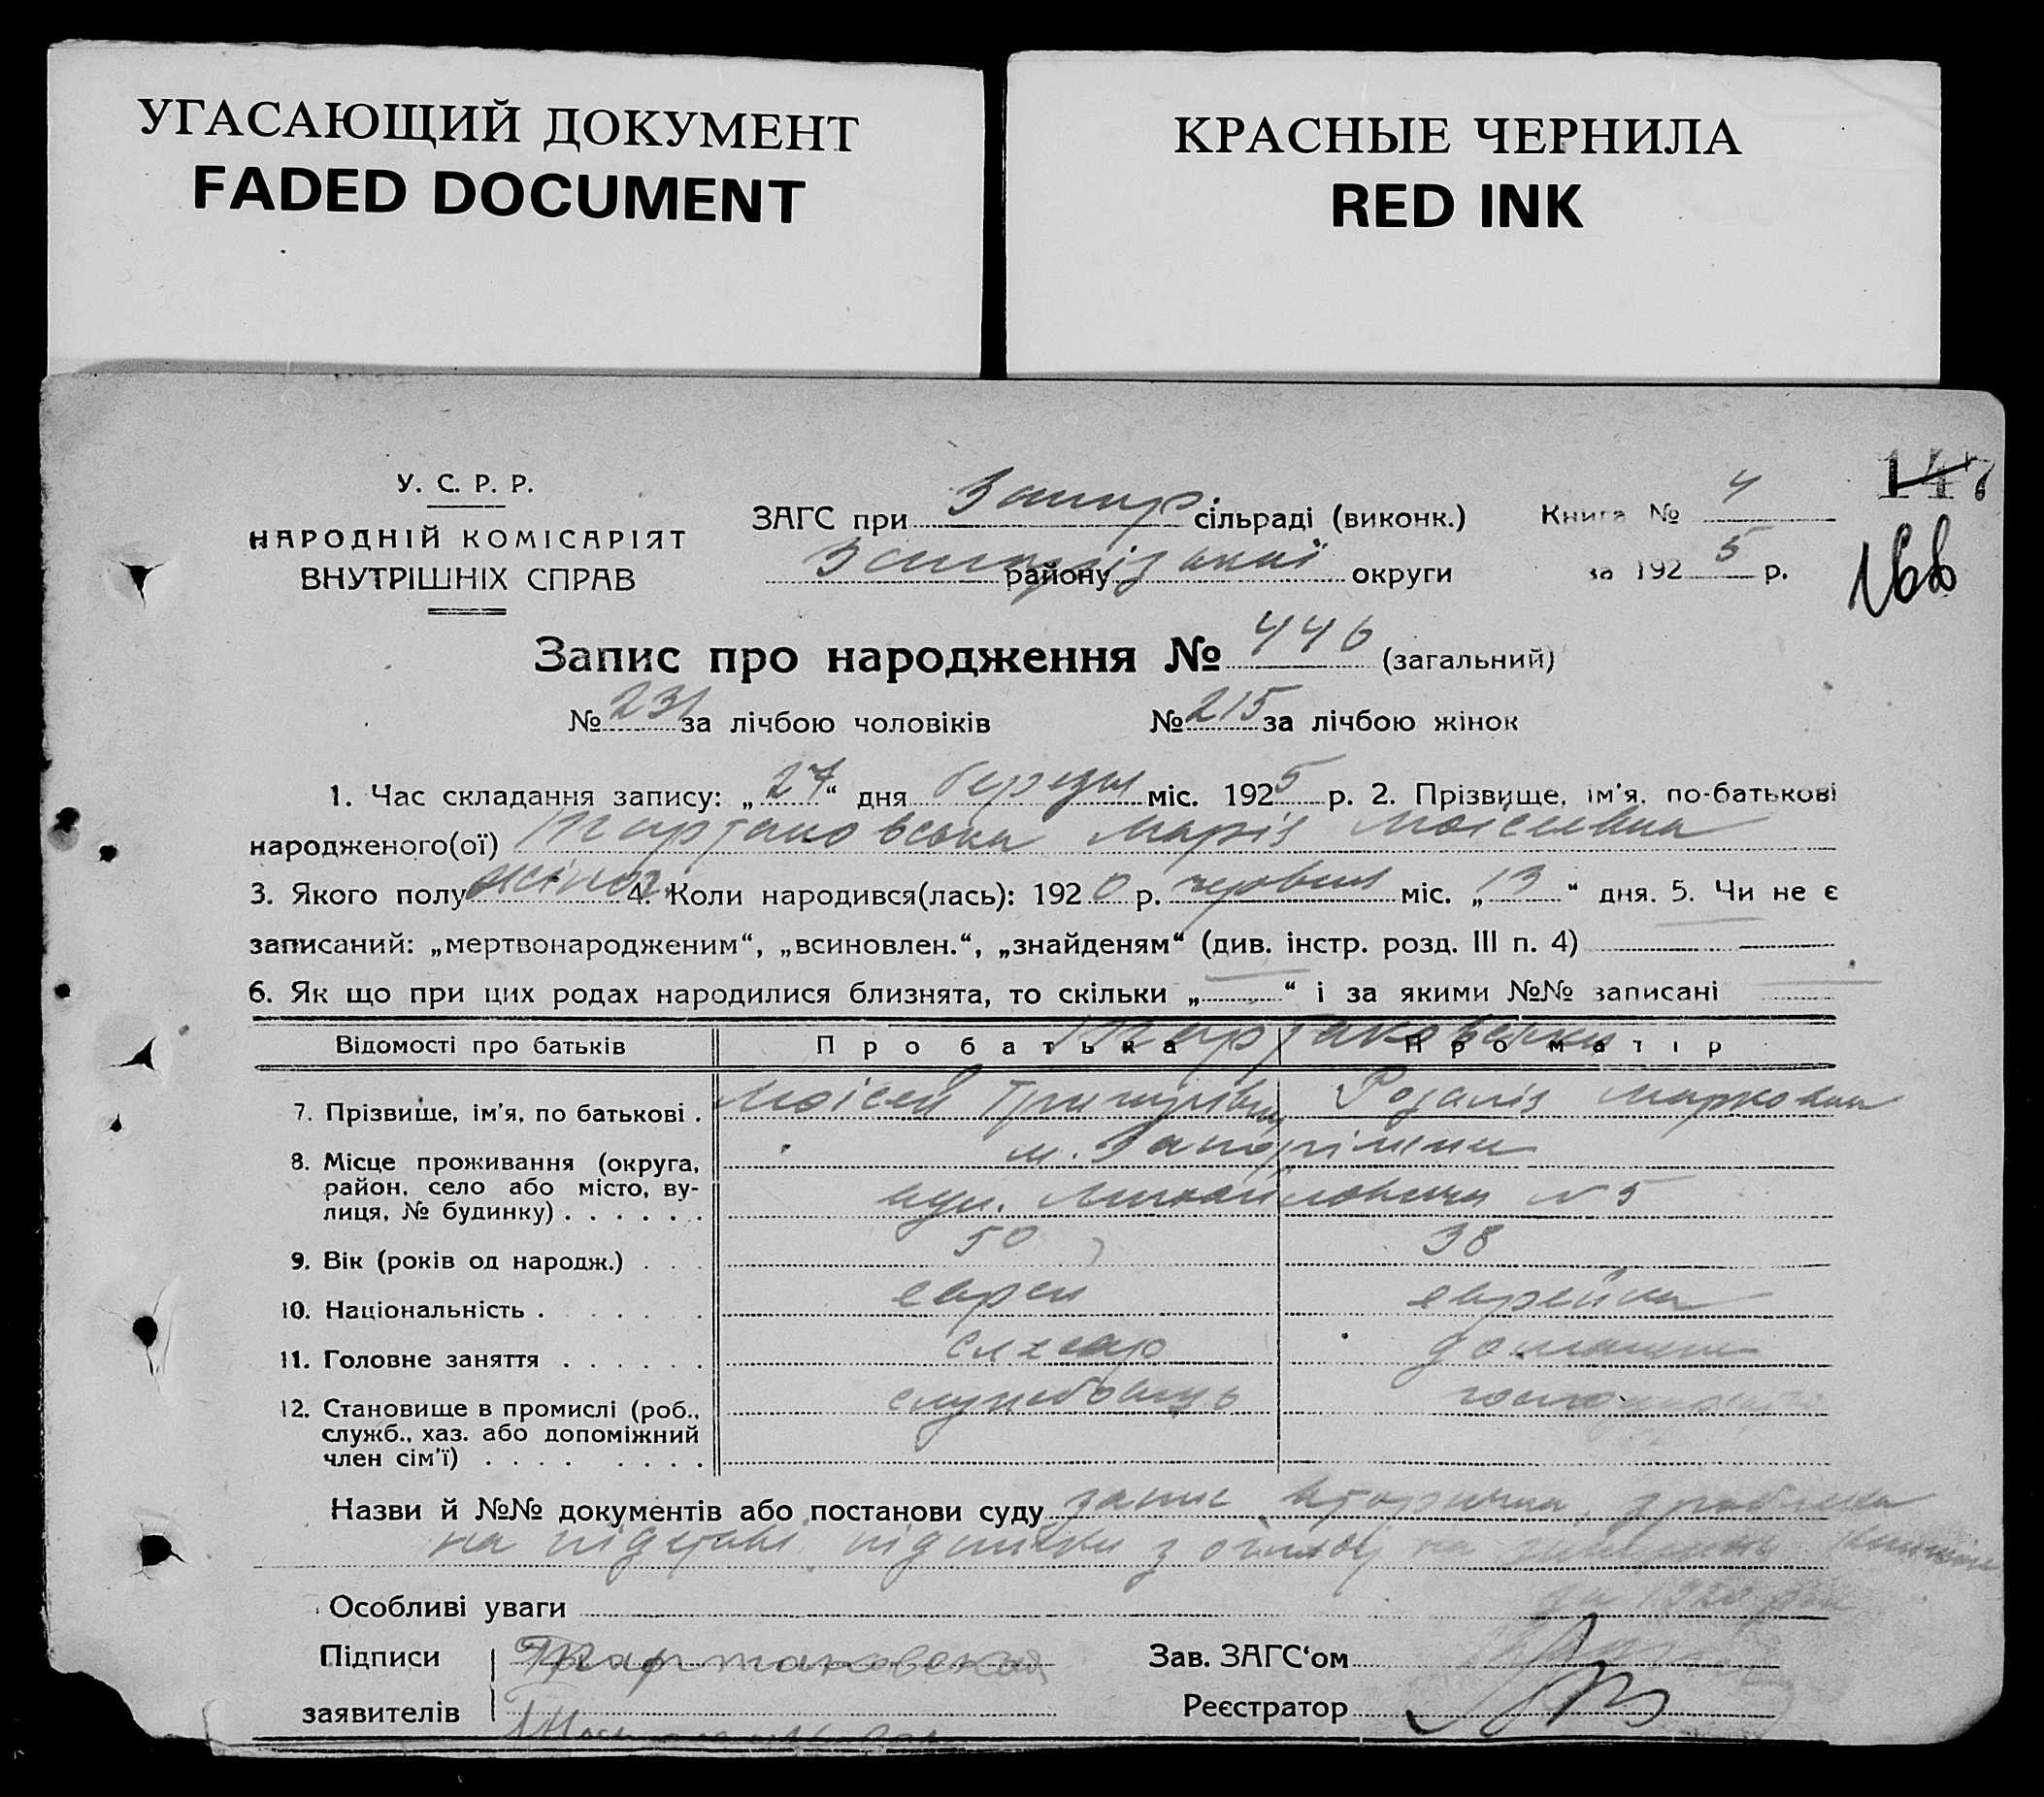 УГАСАЮЩИЙ ДОКУМЕНТ
FADED DOCUMENT
КРАСНЫЕ ЧЕРНИЛА
RED INK
У. С. Р. Р.
НАРОДНІЙ КОМІСАРІЯТ
ВНУТРІШНІХ СПРАВ
ЗАГС при Запор сільраді (виконк.)
району Запорізької округи
Книга № 4
за 1925 р.
147
166
Запис про народження № 446 (загальний)
№ 231 за лічбою чоловіків № 215 за лічбою жінок
1. Час складання запису: „27“ дня березня міс. 1925 р. 2. Прізвище, ім'я, по-батькові
народженого(ої) Тартаковська Марія Моісеівна
3. Якого полу жіноч. 4. Коли народився(лась): 1920 р. червня міс. „13“ дня. 5. Чи не є
записаний: „мертвонародженим“, „всиновлен.“, „знайденям“ (див. інстр. розд. III п. 4)
6. Як що при цих родах народилися близнята, то скільки „—“ і за якими №№ записані
Відомості про батьків Про батька Про матір
Тартаковськи
7. Прізвище, ім'я, по батькові . Моісей Григорівич Розалія Марковна
8. Місце проживання (округа, м. Запоріжжя
район, село або місто, ву-
лиця, № будинку) . . . . . . вул. Михайловська № 5
9. Вік (років од народж.) . . . 50 38
10. Національність . . . . . . . еврей еврейка
11. Головне заняття . . . . . . слюсар домашня
12. Становище в промислі (роб., службовець господарка
служб., хаз. або допоміжний
член сім'ї) . . . . . . . .
Назви й №№ документів або постанови суду запис вторична, зроблена
на підставі підписки з огляду на
за 1920 рік
Особливі уваги
Підписи Тартаковская Зав. ЗАГС'ом
заявителів Реєстратор